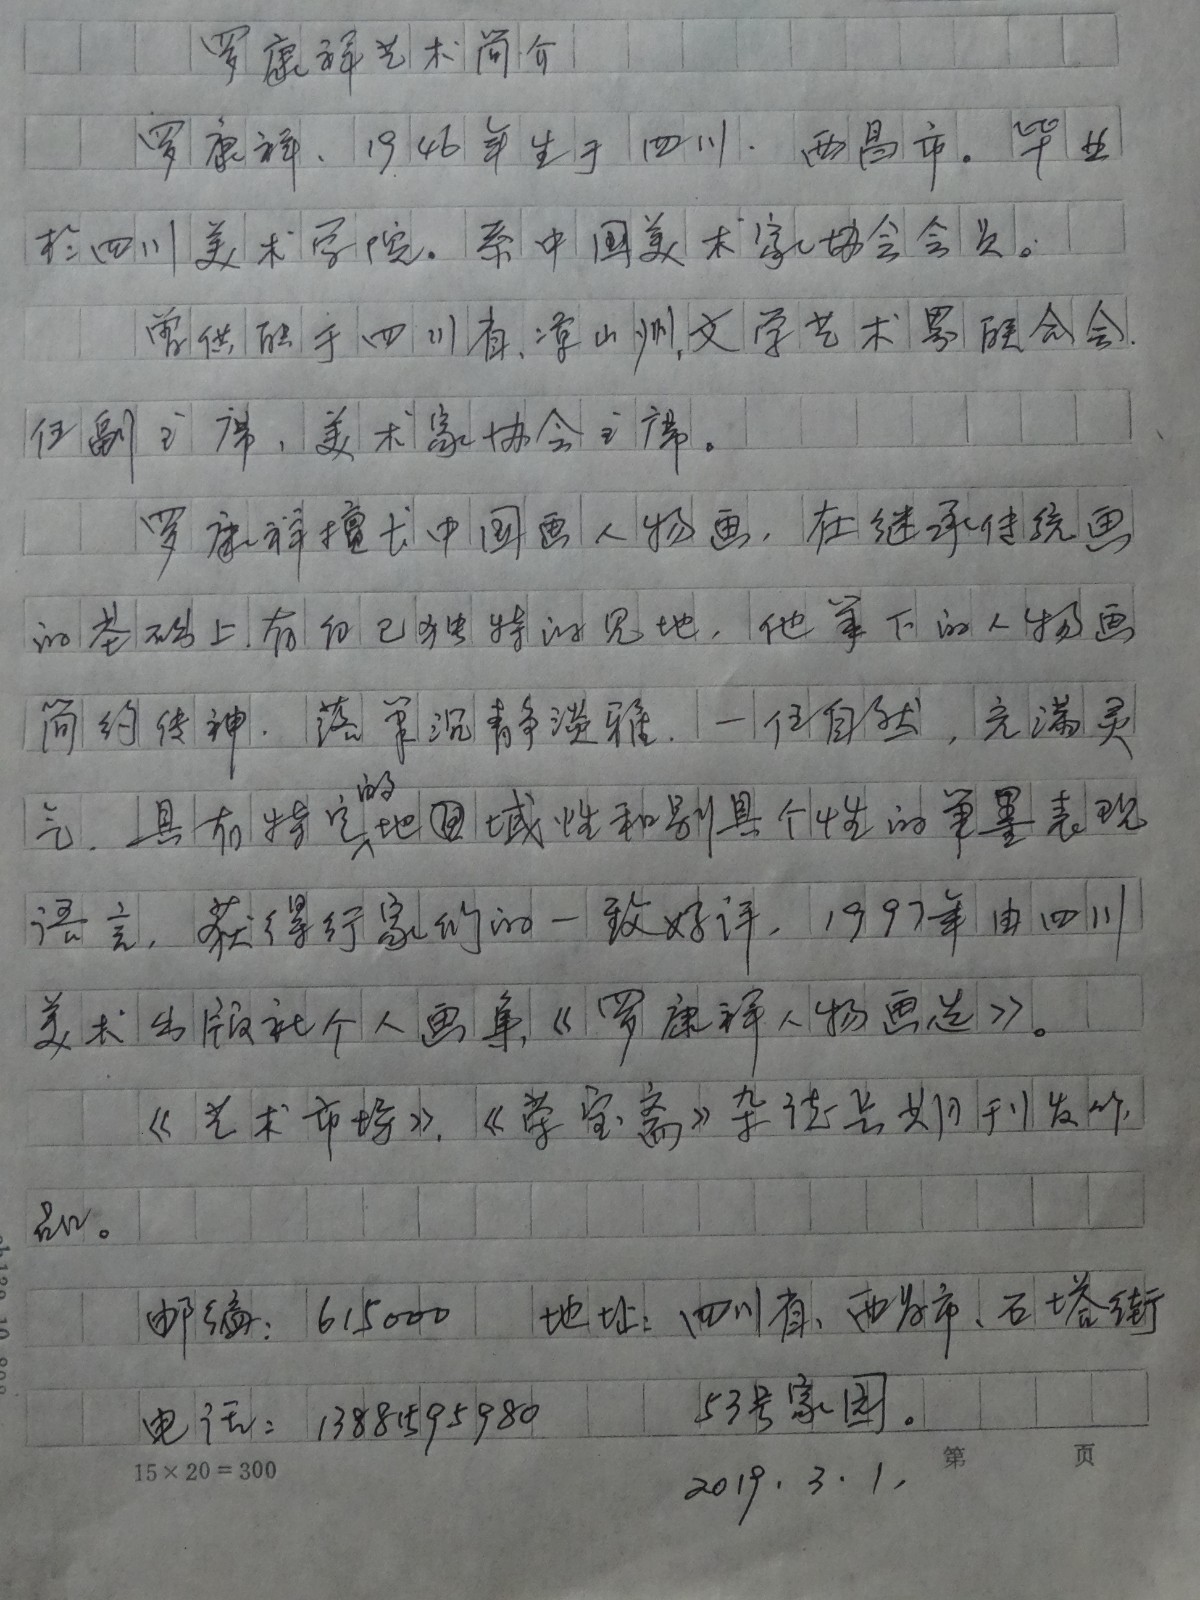 罗康祥艺术简介
罗康祥、1946年生于四川．西昌市。毕业
于四川美术学院。系中国美术家协会会员。
曾供职于四川省、凉山州，文学艺术界联合会．
任副主席、美术家协会主席。
罗康祥擅长中国画人物画．在继承传统画
的基础上．有自己独特的见地．他笔下的人物画
简约传神．落笔沉静淡雅．一任自然，充满灵
气．具有特定的地域性和别具个性的笔墨表现
语言，获得行家们的一致好评．1997年由四川
美术出版社个人画集《罗康祥人物画选》。
《艺术市场》．《荣宝斋》杂志共期刊发作
品。
邮编：615000 地址：四川省、西昌市、石塔街
电话：13881595980 53号家园。
15×20=300 第 页
2019．3．1．